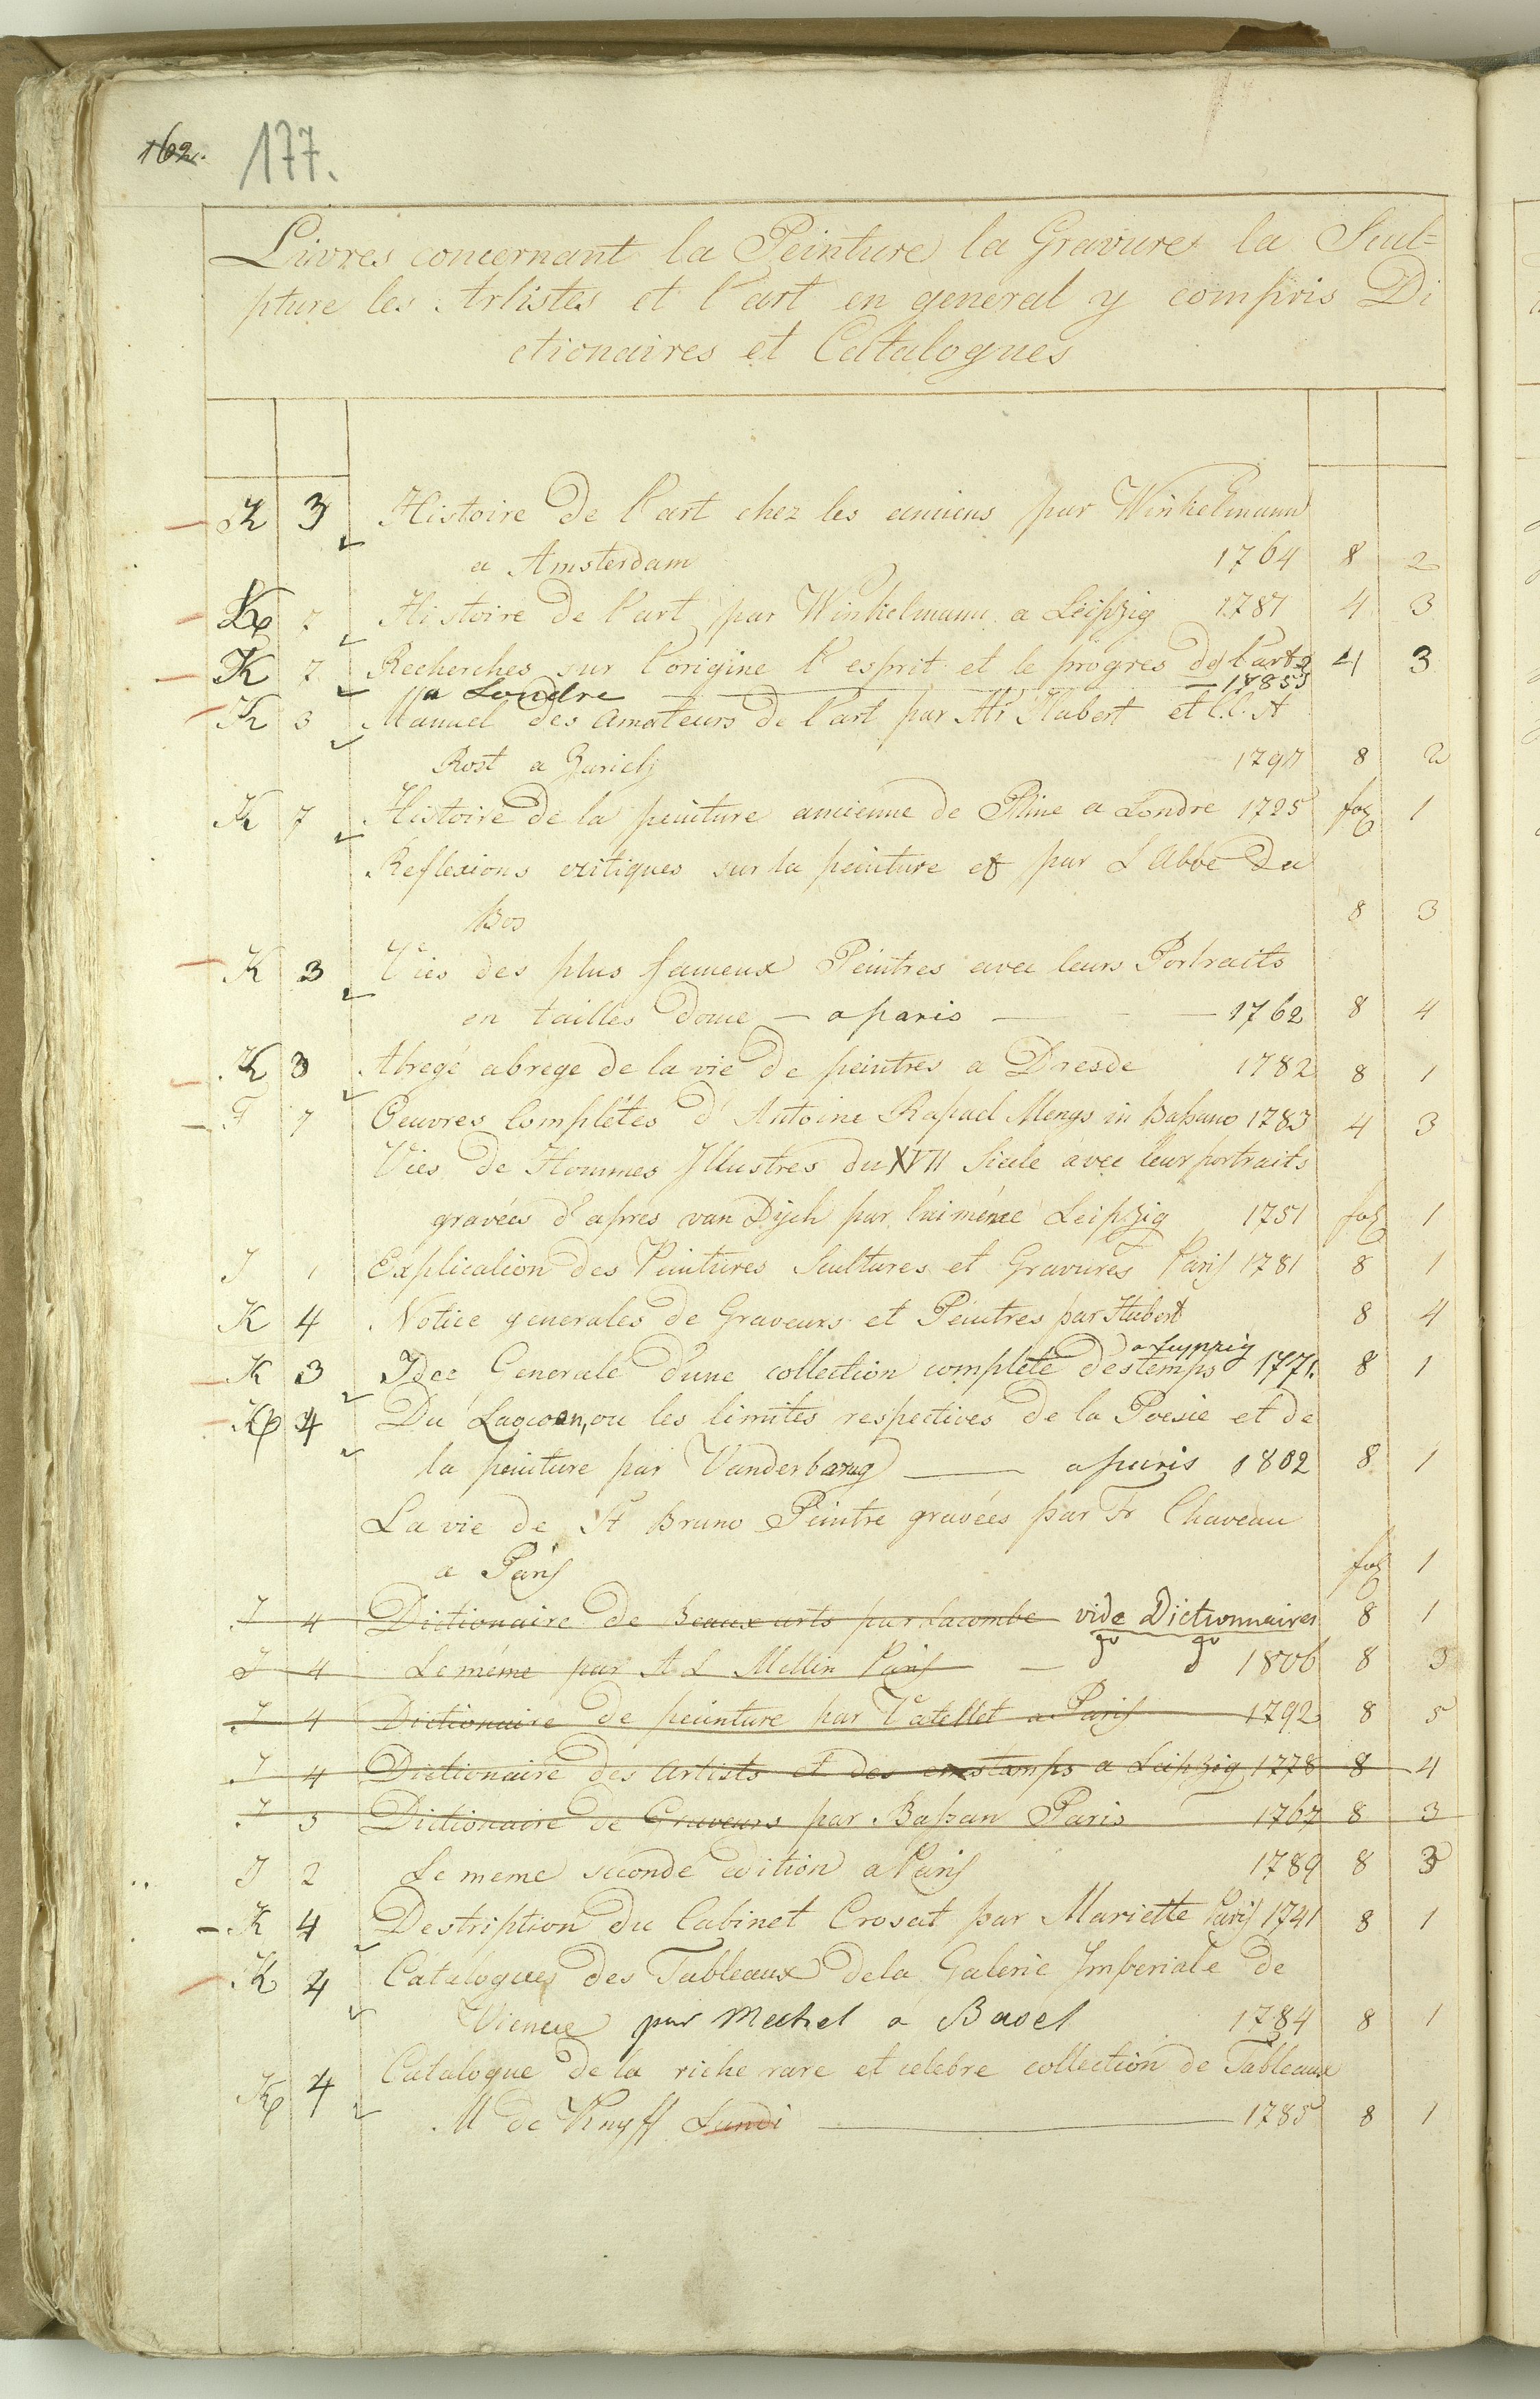 162. 177.
Livres concernant la Peinture la Gravure la Scul=
pture les Artistes et l'art en general y compris Di
ctionaires et Catalogues
K 3 Histoire de l'art chez les anciens par Winkelmann
a Amsterdam 1764 8 2
K 7 Histoire de l'art par Winkelmann a Leipzig 1781 4 3
K 7 Recherches sur l'origine l'esprit et le progres de l'arts 4 3
a Londre — 1785
K 3 Manuel des amateurs de l'art par Mr Hubert et C.C.H
Rost a Zurich 1797 8 2
K 7 Histoire de la peinture ancienne de Pline a Londre 1725 fol 1
Reflexions critiques sur la peinture et par L'Abbé Du
Bos 8 3
K 3 Vies des plus fameux Peintres avec leurs Portraits
en tailles douce — a paris — 1762 8 4
K 3 Abregé abrege de la vie de peintres a Dresde 1782 8 1
F 7 Oeuvres Complétes d'Antoine Rapael Mengs in Baßano 1783 4 3
Vies de Hommes Jllustres du XVII Siecle avec leur portraits
gravées d'apres van Dijck par luiméme Leipzig 1751 fol 1
J 1 Explication des Peintures Scultures et Gravures Paris 1781 8 1
K 4 Notice generales de Graveurs et Peintres par Hubert 8 4
a Leypzig
K 3 Jdee Generale d'une collection compléte d'estemps 1771. 8 1
K 4 Du Laocoon, ou les limites respectives de la Poesie et de
la peinture par Vanderbourg — a paris 1802 8 1
La vie de St Bruno Peintre gravées par Fr Chaveau
a Paris fol 1
J 4 Dictionaire de Beaux arts par Lacombe vide Dictionnaires 8 1
J 4 Le méme par A L Millin Paris — 1806 8 3
J 4 Dictionaire de peinture par Vatellet a Paris 1792 8 5
J 4 Dictionaire des Artists et des enstamps a Leipzig 1778 8 4
J 3 Dictionaire de Graveurs par Baßan Paris 1767 8 3
J 2 Le meme seconde edition a Paris 1789 8 3
K 4 Destription du Cabinet Crosat par Mariette Paris 1741 8 1
K 4 Catalogues des Tableaux dela Galerie Jmperiale de
Vienne par Mechel a Basel 1784 8 1
K 4 Catalogue de la riche rare et celebre collection de Tableaux
M de Knyff Lundi — 1785 8 1